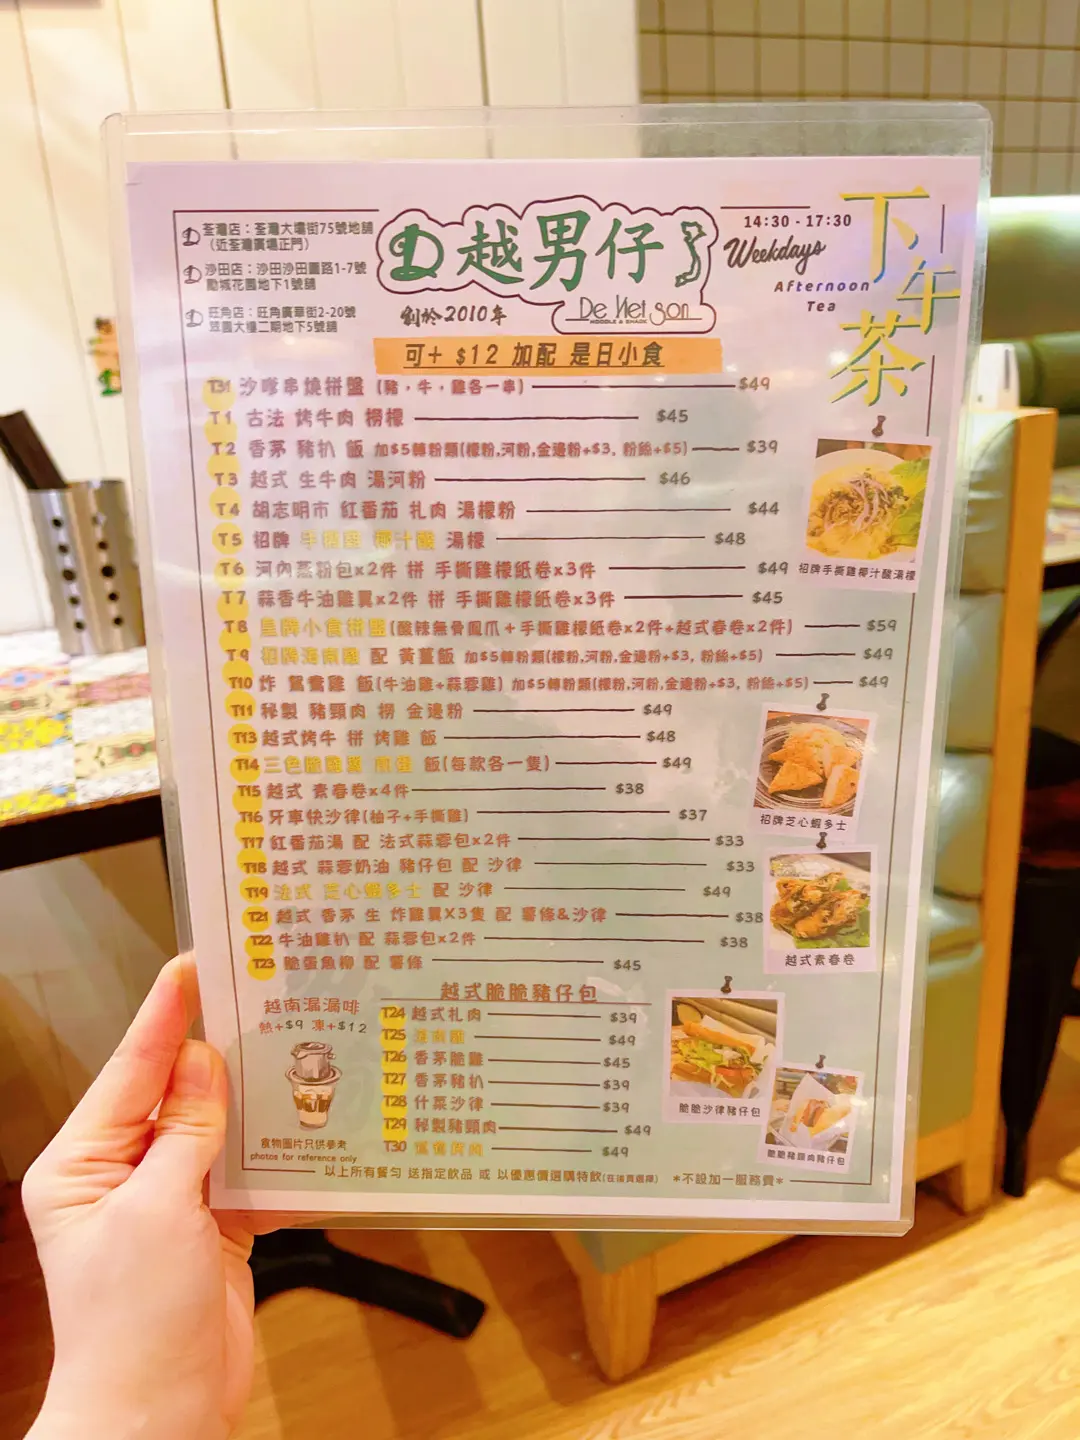 荃灣店：荃灣大壩街75號地舖
（近荃灣廣場正門）
沙田店：沙田沙田圍路1-7號
勵城花園地下1號舖
旺角店：旺角廣華街2-20號
翠園大樓二期地下5號舖
越男仔
創於2010年
De Viet Son
NOODLE & SNACK
14:30 - 17:30
Weekdays
Afternoon
Tea
下午茶
可+ $12 加配 是日小食
T31 沙嗲串燒拼盤 (豬，牛，雞各一串) $49
T1 古法 烤牛肉 撈檬 $45
T2 香茅 豬扒 飯 加$5轉粉類(檬粉,河粉,金邊粉+$3, 粉絲+$5) $39
T3 越式 生牛肉 湯河粉 $46
T4 胡志明市 紅番茄 扎肉 湯檬粉 $44
T5 招牌 手撕雞 椰汁酸 湯檬 $48
T6 河內蒸粉包x2件 拼 手撕雞檬紙卷x3件 $49
T7 蒜香牛油雞翼x2件 拼 手撕雞檬紙卷x3件 $45
T8 皇牌小食拼盤(酸辣無骨鳳爪+手撕雞檬紙卷x2件+越式春卷x2件) $59
T9 招牌海南雞 配 黃薑飯 加$5轉粉類(檬粉,河粉,金邊粉+$3, 粉絲+$5) $49
T10 炸 鴛鴦雞 飯(牛油雞+蒜蓉雞) 加$5轉粉類(檬粉,河粉,金邊粉+$3, 粉絲+$5) $49
T11 秘製 豬頸肉 撈 金邊粉 $49
T13 越式烤牛 拼 烤雞 飯 $48
T14 三色脆雞翼 煎蛋 飯(每款各一隻) $49
T15 越式 素春卷x4件 $38
T16 牙車快沙律(柚子+手撕雞) $37
T17 紅番茄湯 配 法式蒜蓉包x2件 $33
T18 越式 蒜蓉奶油 豬仔包 配 沙律 $33
T19 法式 芝心蝦多士 配 沙律 $49
T21 越式 香茅 生 炸雞翼X3隻 配 薯條&沙律 $38
T22 牛油雞扒 配 蒜蓉包x2件 $38
T23 脆蛋魚柳 配 薯條 $45
招牌手撕雞椰汁酸湯檬
招牌芝心蝦多士
越式素春卷
越南滴漏啡
熱+$9 凍+$12
食物圖片只供參考
photos for reference only
越式脆脆豬仔包
T24 越式扎肉 $39
T25 海南雞 $49
T26 香茅脆雞 $45
T27 香茅豬扒 $39
T28 什菜沙律 $39
T29 秘製豬頸肉 $49
T30 $49
脆脆沙律豬仔包
脆脆豬頸肉豬仔包
以上所有餐勻 送指定飲品 或 以優惠價選購特飲(在後頁選擇) *不設加一服務費*